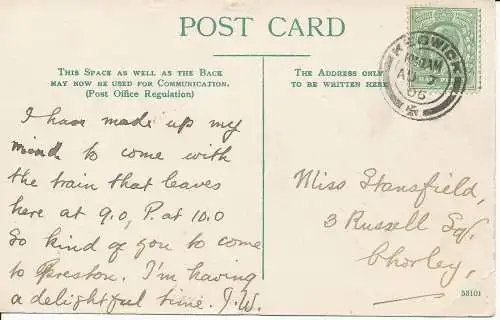 POST CARD
THIS SPACE AS WELL AS THE BACK
MAY NOW BE USED FOR COMMUNICATION.
(Post Office Regulation)
THE ADDRESS ONLY
TO BE WRITTEN HERE
KESWICK
AU 2
06
I have made up my
mind to come with
the train that leaves
here at 9.0, P. at 10.0
So kind of you to come
to Preston. I'm having
a delightful time. J.W.
Miss Stansfield,
3 Russell Sq.
Chorley,
53101